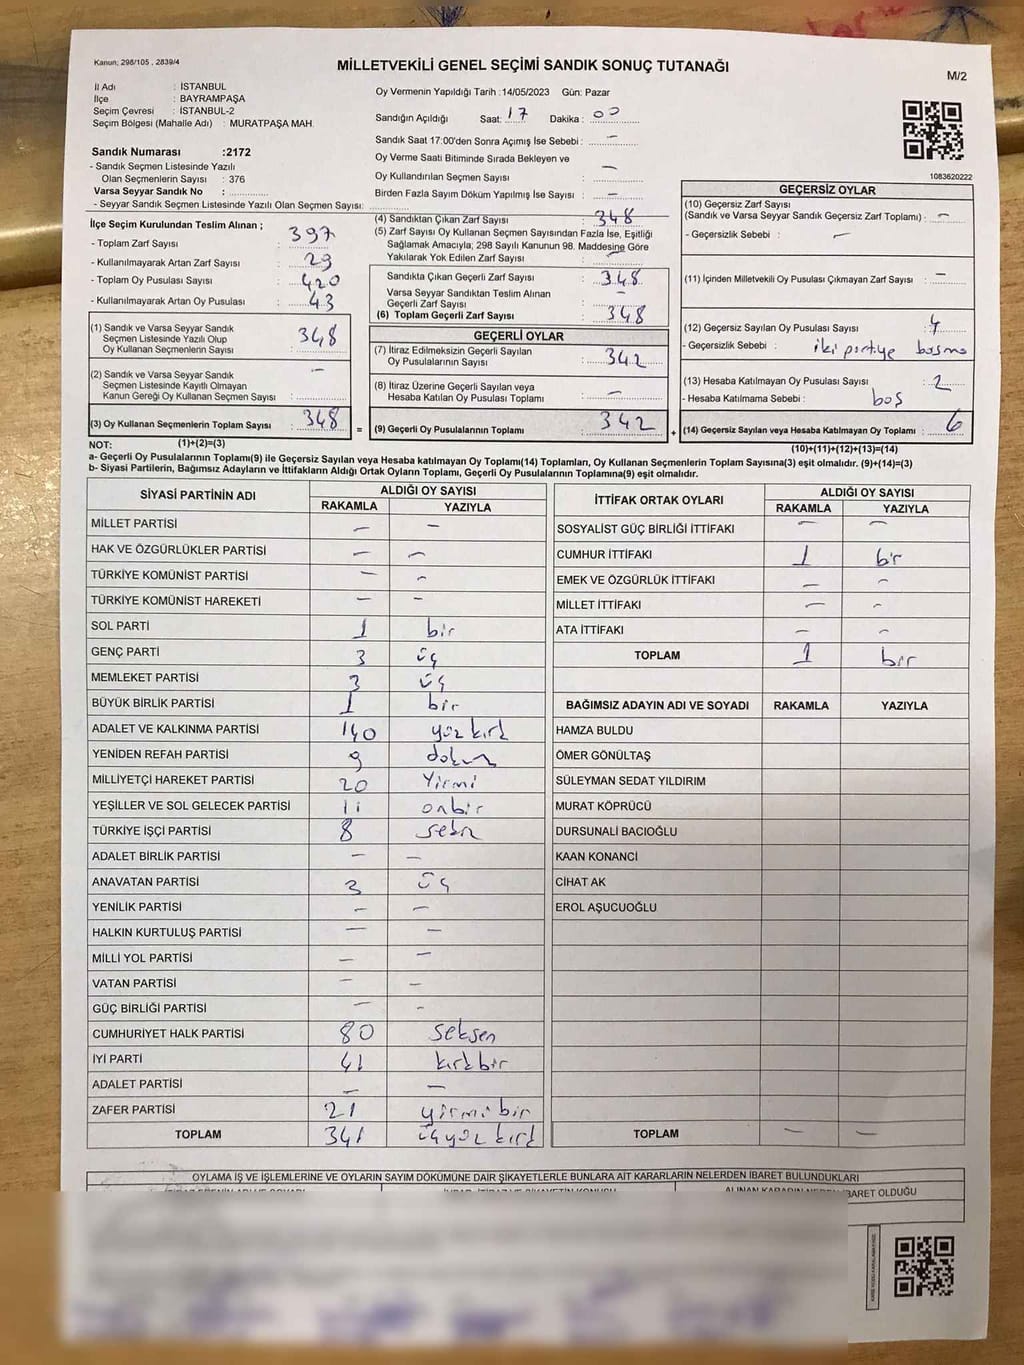 Kanun; 298/105 , 2839/4
MİLLETVEKİLİ GENEL SEÇİMİ SANDIK SONUÇ TUTANAĞI
M/2
İl Adı : İSTANBUL
İlçe : BAYRAMPAŞA
Seçim Çevresi : İSTANBUL-2
Seçim Bölgesi (Mahalle Adı) : MURATPAŞA MAH.
Oy Vermenin Yapıldığı Tarih :14/05/2023 Gün: Pazar
Sandığın Açıldığı Saat: 17 Dakika : 00
Sandık Saat 17:00'den Sonra Açımış İse Sebebi : –
Oy Verme Saati Bitiminde Sırada Bekleyen ve
Oy Kullandırılan Seçmen Sayısı : –
Birden Fazla Sayım Döküm Yapılmış İse Sayısı : –
Sandık Numarası :2172
- Sandık Seçmen Listesinde Yazılı
Olan Seçmenlerin Sayısı : 376
Varsa Seyyar Sandık No :
- Seyyar Sandık Seçmen Listesinde Yazılı Olan Seçmen Sayısı:
1083620222
İlçe Seçim Kurulundan Teslim Alınan ;
- Toplam Zarf Sayısı : 397
- Kullanılmayarak Artan Zarf Sayısı : 29
- Toplam Oy Pusulası Sayısı : 420
- Kullanılmayarak Artan Oy Pusulası : 43
(1) Sandık ve Varsa Seyyar Sandık
Seçmen Listesinde Yazılı Olup
Oy Kullanan Seçmenlerin Sayısı : 348
(2) Sandık ve Varsa Seyyar Sandık
Seçmen Listesinde Kayıtlı Olmayan
Kanun Gereği Oy Kullanan Seçmen Sayısı : –
(3) Oy Kullanan Seçmenlerin Toplam Sayısı : 348
(4) Sandıktan Çıkan Zarf Sayısı : 348
(5) Zarf Sayısı Oy Kullanan Seçmen Sayısından Fazla İse, Eşitliği
Sağlamak Amacıyla; 298 Sayılı Kanunun 98. Maddesine Göre
Yakılarak Yok Edilen Zarf Sayısı : –
Sandıkta Çıkan Geçerli Zarf Sayısı : 348
Varsa Seyyar Sandıktan Teslim Alınan
Geçerli Zarf Sayısı : –
(6) Toplam Geçerli Zarf Sayısı : 348
GEÇERLİ OYLAR
(7) İtiraz Edilmeksizin Geçerli Sayılan
Oy Pusulalarının Sayısı : 342
(8) İtiraz Üzerine Geçerli Sayılan veya
Hesaba Katılan Oy Pusulası Toplamı : –
= (9) Geçerli Oy Pusulalarının Toplamı : 342
GEÇERSİZ OYLAR
(10) Geçersiz Zarf Sayısı
(Sandık ve Varsa Seyyar Sandık Geçersiz Zarf Toplamı) : –
- Geçersizlik Sebebi : –
(11) İçinden Milletvekili Oy Pusulası Çıkmayan Zarf Sayısı : –
(12) Geçersiz Sayılan Oy Pusulası Sayısı : 4
- Geçersizlik Sebebi : iki partiye basma
(13) Hesaba Katılmayan Oy Pusulası Sayısı : 2
- Hesaba Katılmama Sebebi : boş
+ (14) Geçersiz Sayılan veya Hesaba Katılmayan Oy Toplamı : 6
NOT: (1)+(2)=(3)
(10)+(11)+(12)+(13)=(14)
a- Geçerli Oy Pusulalarının Toplamı(9) ile Geçersiz Sayılan veya Hesaba Katılmayan Oy Toplamı(14) Toplamları, Oy Kullanan Seçmenlerin Toplam Sayısına(3) eşit olmalıdır. (9)+(14)=(3)
b- Siyasi Partilerin, Bağımsız Adayların ve İttifakların Aldığı Ortak Oyların Toplamı, Geçerli Oy Pusulalarının Toplamına(9) eşit olmalıdır.
SİYASİ PARTİNİN ADI ALDIĞI OY SAYISI
RAKAMLA YAZIYLA
MİLLET PARTİSİ – –
HAK VE ÖZGÜRLÜKLER PARTİSİ – –
TÜRKİYE KOMÜNİST PARTİSİ – –
TÜRKİYE KOMÜNİST HAREKETİ – –
SOL PARTİ 1 bir
GENÇ PARTİ 3 üç
MEMLEKET PARTİSİ 3 üç
BÜYÜK BİRLİK PARTİSİ 1 bir
ADALET VE KALKINMA PARTİSİ 140 yüz kırk
YENİDEN REFAH PARTİSİ 9 dokuz
MİLLİYETÇİ HAREKET PARTİSİ 20 Yirmi
YEŞİLLER VE SOL GELECEK PARTİSİ 11 onbir
TÜRKİYE İŞÇİ PARTİSİ 8 sekiz
ADALET BİRLİK PARTİSİ – –
ANAVATAN PARTİSİ 3 üç
YENİLİK PARTİSİ – –
HALKIN KURTULUŞ PARTİSİ – –
MİLLİ YOL PARTİSİ – –
VATAN PARTİSİ – –
GÜÇ BİRLİĞİ PARTİSİ – –
CUMHURİYET HALK PARTİSİ 80 seksen
İYİ PARTİ 41 kırk bir
ADALET PARTİSİ – –
ZAFER PARTİSİ 21 yirmi bir
TOPLAM 341 üçyüz kırk
İTTİFAK ORTAK OYLARI ALDIĞI OY SAYISI
RAKAMLA YAZIYLA
SOSYALİST GÜÇ BİRLİĞİ İTTİFAKI – –
CUMHUR İTTİFAKI 1 bir
EMEK VE ÖZGÜRLÜK İTTİFAKI – –
MİLLET İTTİFAKI – –
ATA İTTİFAKI – –
TOPLAM 1 bir
BAĞIMSIZ ADAYIN ADI VE SOYADI RAKAMLA YAZIYLA
HAMZA BULDU
ÖMER GÖNÜLTAŞ
SÜLEYMAN SEDAT YILDIRIM
MURAT KÖPRÜCÜ
DURSUNALİ BACIOĞLU
KAAN KONANCİ
CİHAT AK
EROL AŞUCUOĞLU
TOPLAM – –
OYLAMA İŞ VE İŞLEMLERİNE VE OYLARIN SAYIM DÖKÜMÜNE DAİR ŞİKAYETLERLE BUNLARA AİT KARARLARIN NELERDEN İBARET BULUNDUKLARI
ALINAN KARARIN NEDEN İBARET OLDUĞU